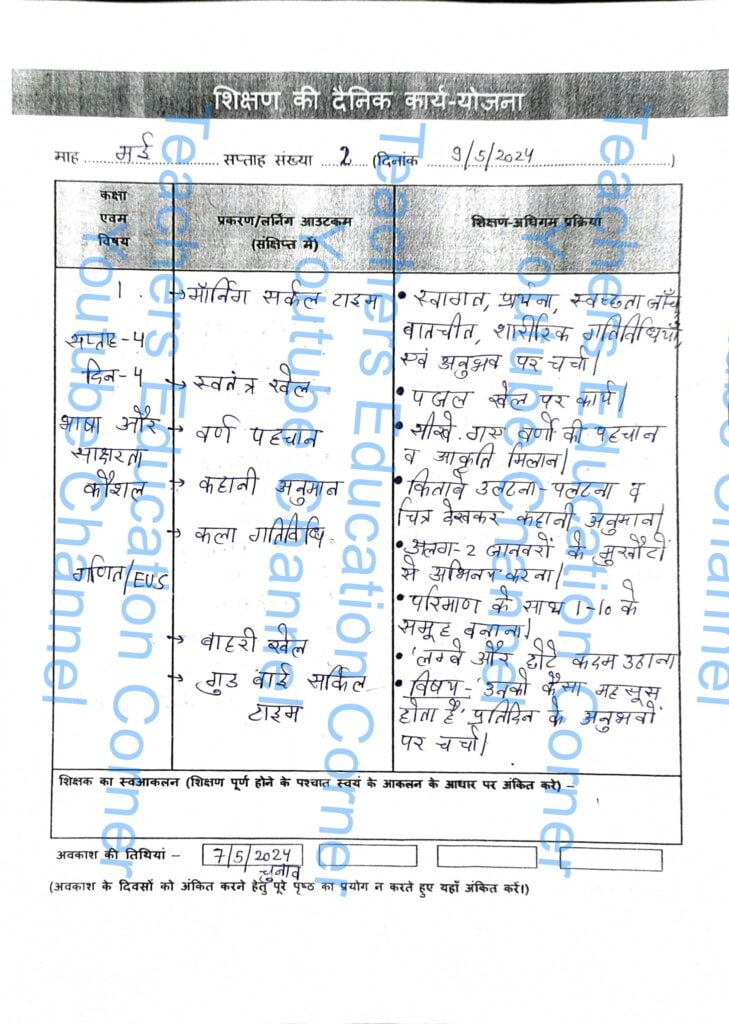 शिक्षण की दैनिक कार्य-योजना
माह ..... मई ..... सप्ताह संख्या ... 2 ... (दिनांक ..... 9/5/2024 .....)
कक्षा
एवम
विषय
प्रकरण/लर्निंग आउटकम
(संक्षिप्त में)
शिक्षण-अधिगम प्रक्रिया
1.
सप्ताह-4
दिन-4
भाषा और
साक्षरता
कौशल
गणित/EVS
→ मॉर्निंग सर्कल टाइम
→ स्वतंत्र खेल
→ वर्ण पहचान
→ कहानी अनुमान
→ कला गतिविधि
→ बाहरी खेल
→ गुड बाई सर्किल
टाइम
• स्वागत, प्रार्थना, स्वच्छता जाँच
बातचीत, शारीरिक गतिविधियाँ,
एवं अनुभव पर चर्चा।
• पजल खेल पर कार्य।
• सीखे गए वर्णों की पहचान
व आकृति मिलान।
• किताबें उलटना-पलटना व
चित्र देखकर कहानी अनुमान।
• अलग-2 जानवरों के मुखौटों
से अभिनय करना।
• परिमाण के साथ 1-10 के
समूह बनाना।
• 'लम्बे और छोटे कदम उठाना
• विषय- 'उनको कैसा महसूस
होता है' प्रतिदिन के अनुभवों
पर चर्चा।
शिक्षक का स्वआकलन (शिक्षण पूर्ण होने के पश्चात स्वयं के आकलन के आधार पर अंकित करें) –
अवकाश की तिथियां – 7/5/2024
चुनाव
(अवकाश के दिवसों को अंकित करने हेतु पूरे पृष्ठ का प्रयोग न करते हुए यहाँ अंकित करें।)
Teachers Education Corner
Youtube Channel
Teachers Education Corner
Youtube Channel
Teachers Education Corner
Youtube Channel